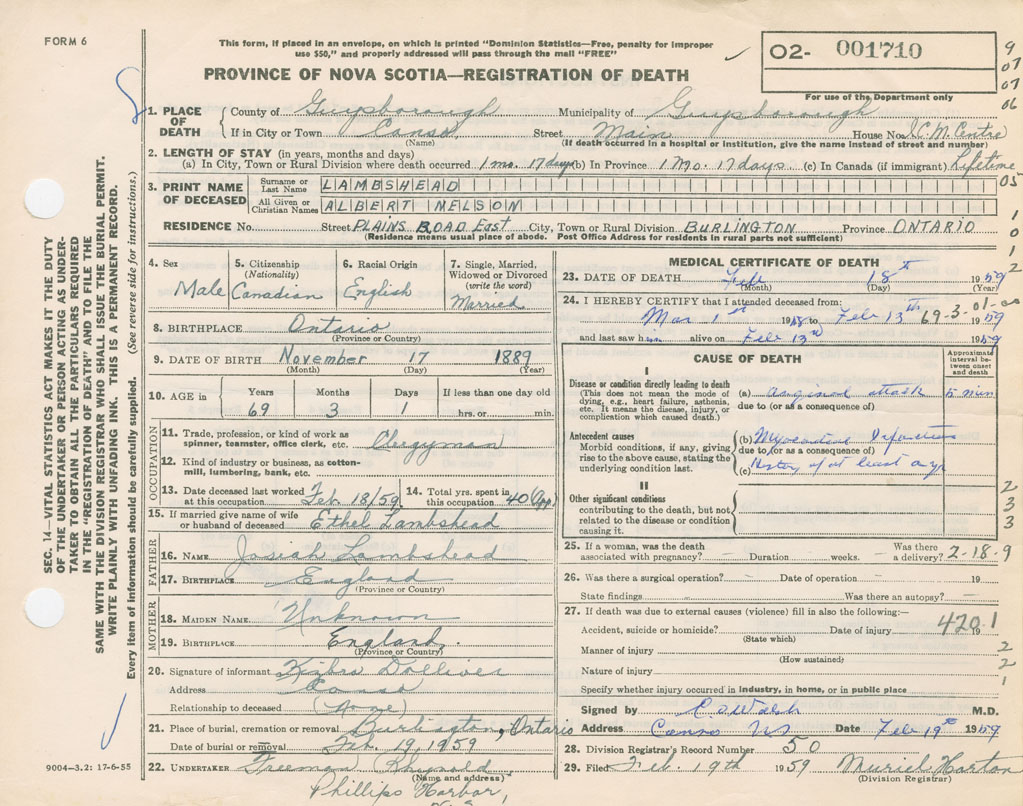 FORM 6
This form, if placed in an envelope, on which is printed "Dominion Statistics—Free, penalty for improper
use $50," and properly addressed will pass through the mail "FREE"
PROVINCE OF NOVA SCOTIA—REGISTRATION OF DEATH
O2- 001710
For use of the Department only
9
07
07
06
05
1
0
1
2
SEC. 14—VITAL STATISTICS ACT MAKES IT THE DUTY
OF THE UNDERTAKER OR PERSON ACTING AS UNDER-
TAKER TO OBTAIN ALL THE PARTICULARS REQUIRED
IN THE "REGISTRATION OF DEATH" AND TO FILE THE
SAME WITH THE DIVISION REGISTRAR WHO SHALL ISSUE THE BURIAL PERMIT.
WRITE PLAINLY WITH UNFADING INK. THIS IS A PERMANENT RECORD.
Every item of information should be carefully supplied. (See reverse side for instructions.)
1. PLACE OF DEATH
County of Guysborough Municipality of Guysborough
If in City or Town Canso Street Main House No. C. M. Centre
(Name) (If death occurred in a hospital or institution, give the name instead of street and number)
2. LENGTH OF STAY (in years, months and days)
(a) In City, Town or Rural Division where death occurred 1 mo. 17 days (b) In Province 1 Mo. 17 days (c) In Canada (if immigrant) Lifetime
3. PRINT NAME OF DECEASED
Surname or Last Name LAMBSHEAD
All Given or Christian Names ALBERT MELSON
RESIDENCE No. Street PLAINS ROAD East City, Town or Rural Division BURLINGTON Province ONTARIO
(Residence means usual place of abode. Post Office Address for residents in rural parts not sufficient)
4. Sex
Male
5. Citizenship
(Nationality)
Canadian
6. Racial Origin
English
7. Single, Married,
Widowed or Divorced
(write the word)
Married
8. BIRTHPLACE Ontario
(Province or Country)
9. DATE OF BIRTH November 17 1889
(Month) (Day) (Year)
10. AGE in
Years Months Days If less than one day old
69 3 1 hrs. or min.
OCCUPATION
11. Trade, profession, or kind of work as
spinner, teamster, office clerk, etc. Clergyman
12. Kind of industry or business, as cotton-
mill, lumbering, bank, etc.
13. Date deceased last worked
at this occupation Feb. 18/59
14. Total yrs. spent in
this occupation 40 (App)
15. If married give name of wife
or husband of deceased Ethel Lambshead
FATHER
16. NAME Josiah Lambshead
17. BIRTHPLACE England
(Province or Country)
MOTHER
18. MAIDEN NAME Unknown
19. BIRTHPLACE England
(Province or Country)
20. Signature of informant Dolliver
Address Canso
Relationship to deceased (None)
21. Place of burial, cremation or removal Burlington, Ontario
Date of burial or removal Feb. 19, 1959
22. UNDERTAKER Freeman
(Name and address)
Phillips Harbor,
N.S.
9004-3.2: 17-6-55
MEDICAL CERTIFICATE OF DEATH
23. DATE OF DEATH Feb 18th 1959
(Month) (Day) (Year)
24. I HEREBY CERTIFY that I attended deceased from:
Mar 1st 1958 to Feb 13th 1959
69-3-01-00
and last saw him alive on Feb 13th 1959
CAUSE OF DEATH
Approximate
interval be-
tween onset
and death
I
Disease or condition directly leading to death
(This does not mean the mode of
dying, e.g., heart failure, asthenia,
etc. It means the disease, injury, or
complication which caused death.)
(a) Anginal attack 5 min
due to (or as a consequence of)
Antecedent causes
Morbid conditions, if any, giving
rise to the above cause, stating the
underlying condition last.
(b) Myocardial Infarction
due to (or as a consequence of)
(c) History of at least a yr
II
Other significant conditions
contributing to the death, but not
related to the disease or condition
causing it.
2
3
3
25. If a woman, was the death
associated with pregnancy? — Duration weeks. — Was there
a delivery? 2-18-9
26. Was there a surgical operation? — Date of operation — 19
State findings — Was there an autopsy? —
27. If death was due to external causes (violence) fill in also the following:—
Accident, suicide or homicide? Date of injury 19
(State which)
420.1
Manner of injury
(How sustained)
Nature of injury
2
2
1
Specify whether injury occurred in industry, in home, or in public place
Signed by C.O. Walsh M.D.
Address Canso NS Date Feb 19th 1959
28. Division Registrar's Record Number 50
29. Filed Feb. 19th 1959 Muriel Horton
(Division Registrar)